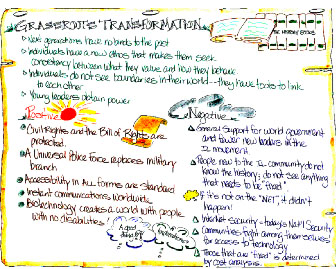 GRASSROOTS TRANSFORMATION
THE HISTORY BOOKS
New generations have no binds to the past
Individuals have a new ethos that makes them seek
consistency between what they value and how they behave
Individuals do not see boundaries in their world - they have tools to link
to each other
Young leaders obtain power
Positive
Civil Rights and the Bill of Rights are
protected.
A Universal Police Force replaces military
branch
Accessibility in ALL forms are standard
Instant communications worldwide
Biotechnology creates a world with people
with no disabilities!
Aged
Negative
General Support for world government
and fewer new leaders in the
IL movement
People new to the IL community do not
know the history; do not see anything
that needs to be "fixed".
If it's not on the "NET", it didn't
happen!
Internet Security - today's Nat'l Security
Communities fight among themselves
for access to technology
Those that are "fixed" is determined
by cost analysis.